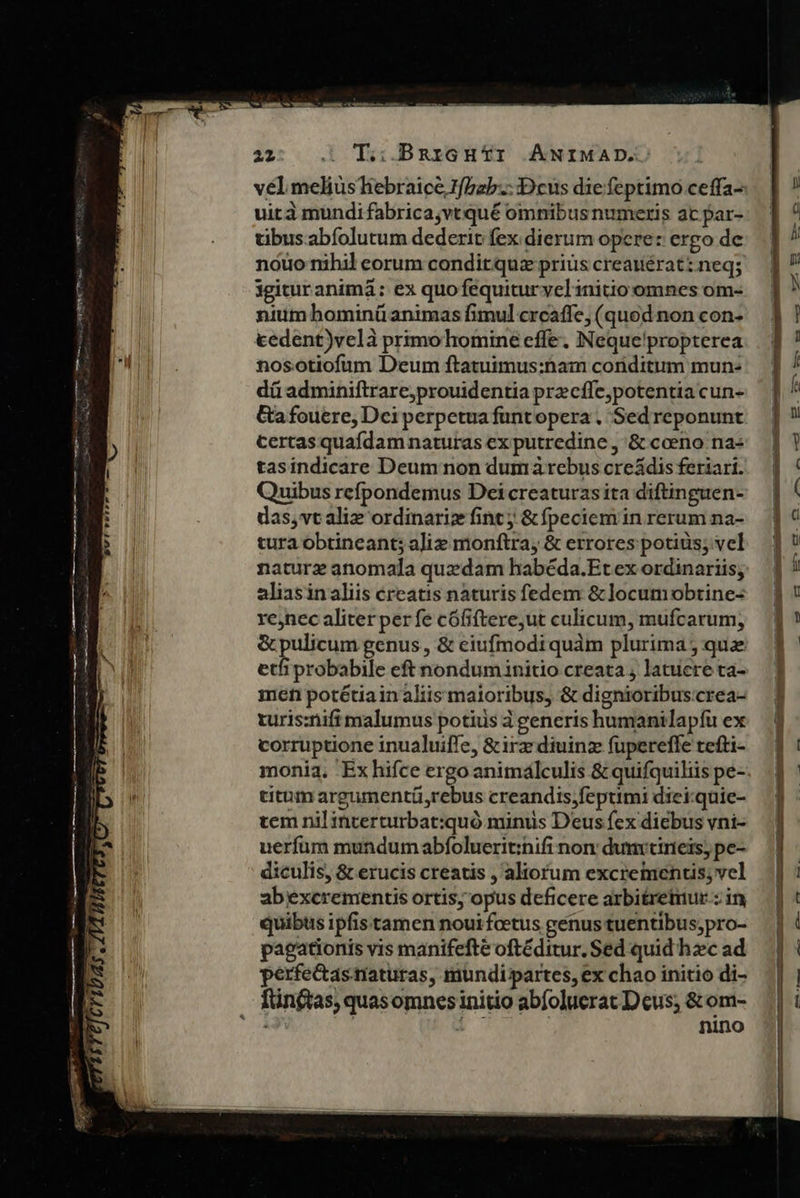 22 T. BRIGHTI ANIMAD.
vel meliùs hebraicè Iſhab: Deus die ſeptimo ceſſa-
uit à mundi fabrica, vt qué omnibus numeris ac par-
tibus abſolutum dederit ſex dierum opere: ergo de
nouo nihil eorum condit quæ priùs creauerat: neq;
igitur animā: ex quo ſequitur vel initio omnes om-
nium hominū animas ſimul creaſſe, (quod non con-
cedent) vel à primo homine eſſe. Neque propterea
nos otioſum Deum ſtatuimus: nam conditum mun-
dū adminiſtrare, prouidentia præeſſe, potentia cun-
cta fouere, Dei perpetua ſunt opera. Sed reponunt
certas quaſdam naturas ex putredine, & cœno na-
tas indicare Deum non dum à rebus creādis feriari.
Quibus reſpondemus Dei creaturas ita diſtinguen-
das, vt aliæ ordinariæ ſint; & ſpeciem in rerum na-
tura obtineant; aliæ monſtra, & errores potiùs; vel
naturæ anomala quædam habēda. Et ex ordinariis,
alias in aliis creatis naturis ſedem & locum obtine-
re, nec aliter per ſe cōſiſtere, ut culicum, muſcarum,
& pulicum genus, & eiuſmodi quàm plurima; quæ
etſi probabile eſt nondum initio creata, latuere ta-
men potētia in aliis maioribus, & dignioribus crea-
turis: niſi malumus potiùs à generis humani lapſu ex
corruptione inualuiſſe, & iræ diuinæ ſupereſſe teſti-
monia. Ex hiſce ergo animálculis & quiſquiliis pe-
titum argumentū, rebus creandis, ſeptimi diei quie-
tem nil interturbat: quò minùs Deus ſex diebus vni-
uerſum mundum abſoluerit: niſi non dum tineis, pe-
diculis, & erucis creatis, aliorum excrementis, vel
ab excrementis ortis, opus deficere arbitremur: in
quibus ipſis tamen noui fœtus genus tuentibus, pro-
pagationis vis manifeſtè oſtēditur. Sed quid hæc ad
perfectas naturas, mundi partes, ex chao initio di-
ſtinctas, quas omnes initio abſoluerat Deus, & om-
nino